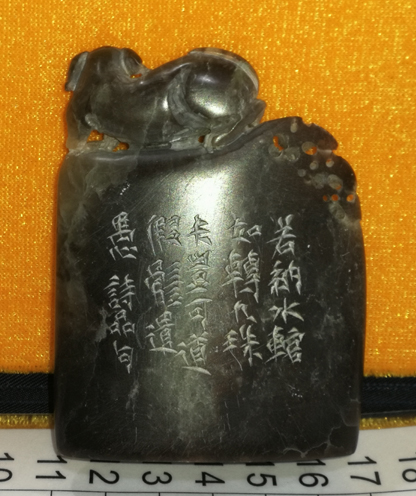 若納水輨
如轉丸珠
夫豈可道
假體遺
愚 詩品句